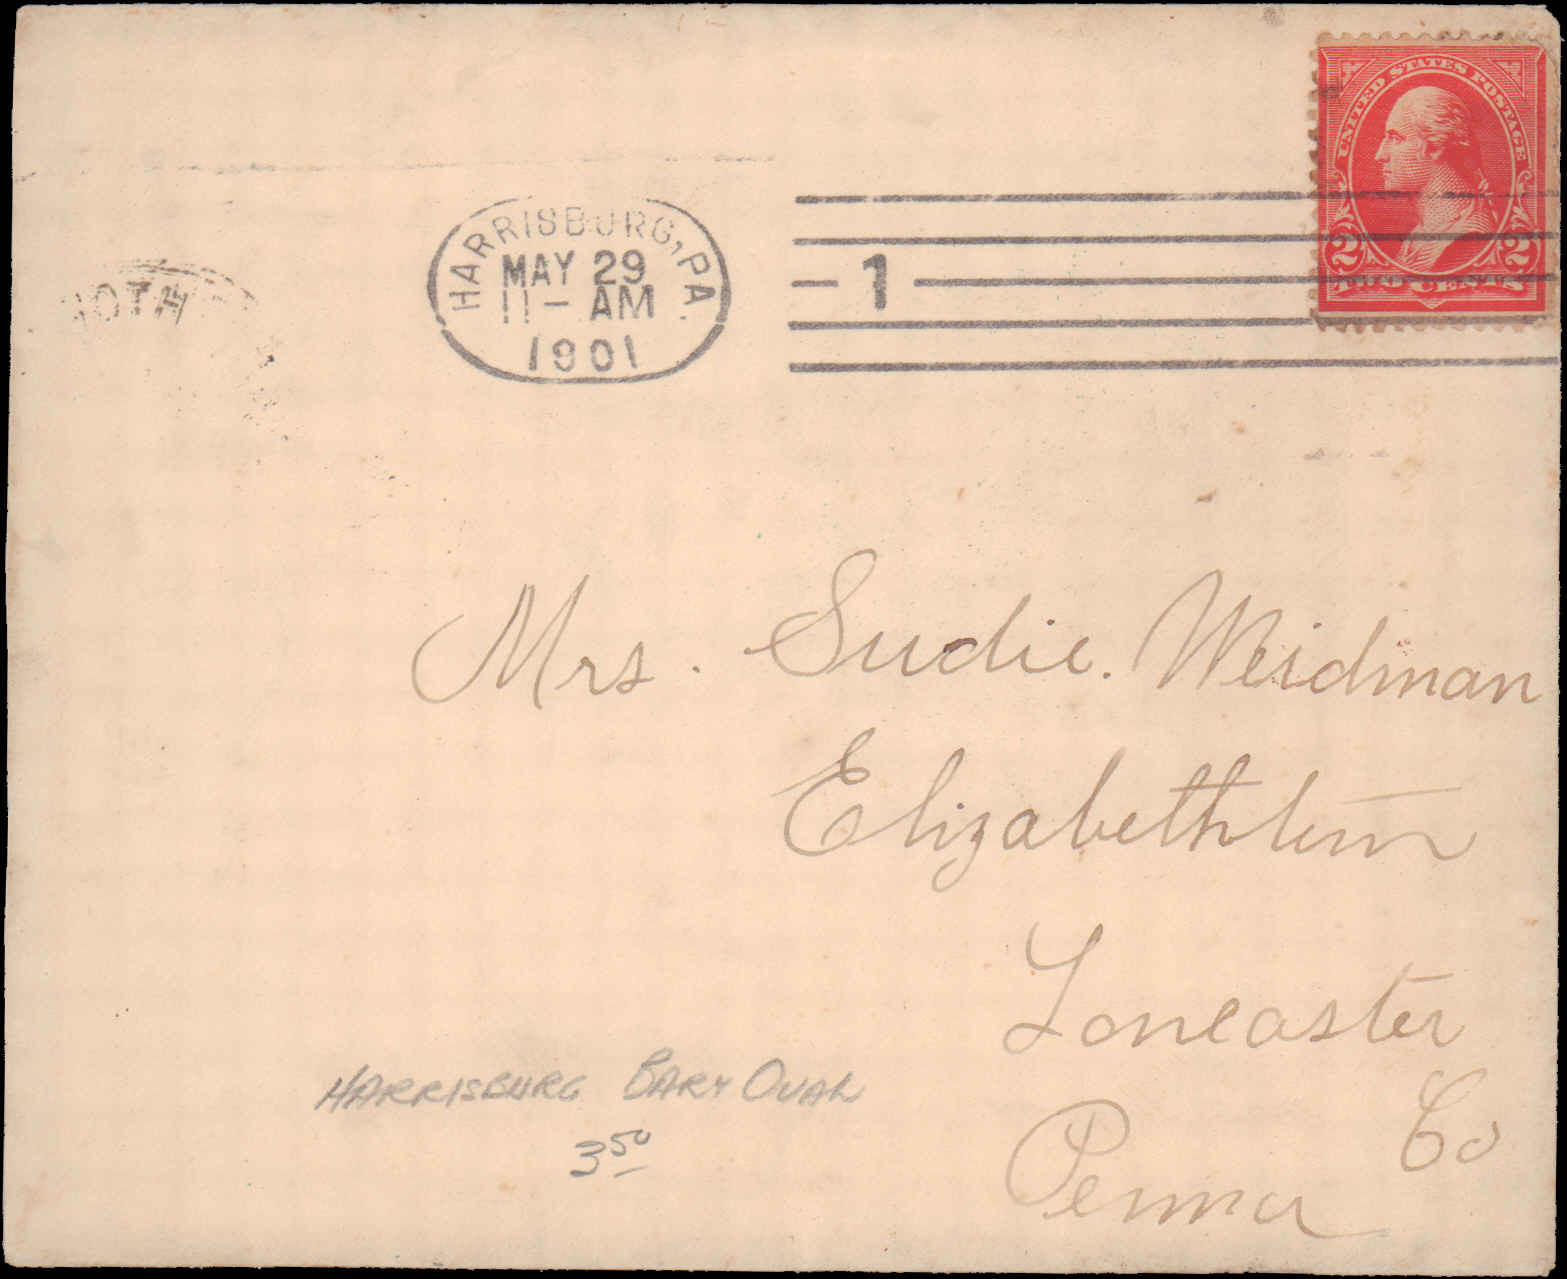 UNITED STATES POSTAGE
2 2
TWO CENTS
HARRISBURG, PA.
MAY 29
11 - AM
1901
1
OTH
Mrs. Sudie. Weidman
Elizabethtown
Lancaster
Co
Penna
HARRISBURG BARRY OVAL
3 50